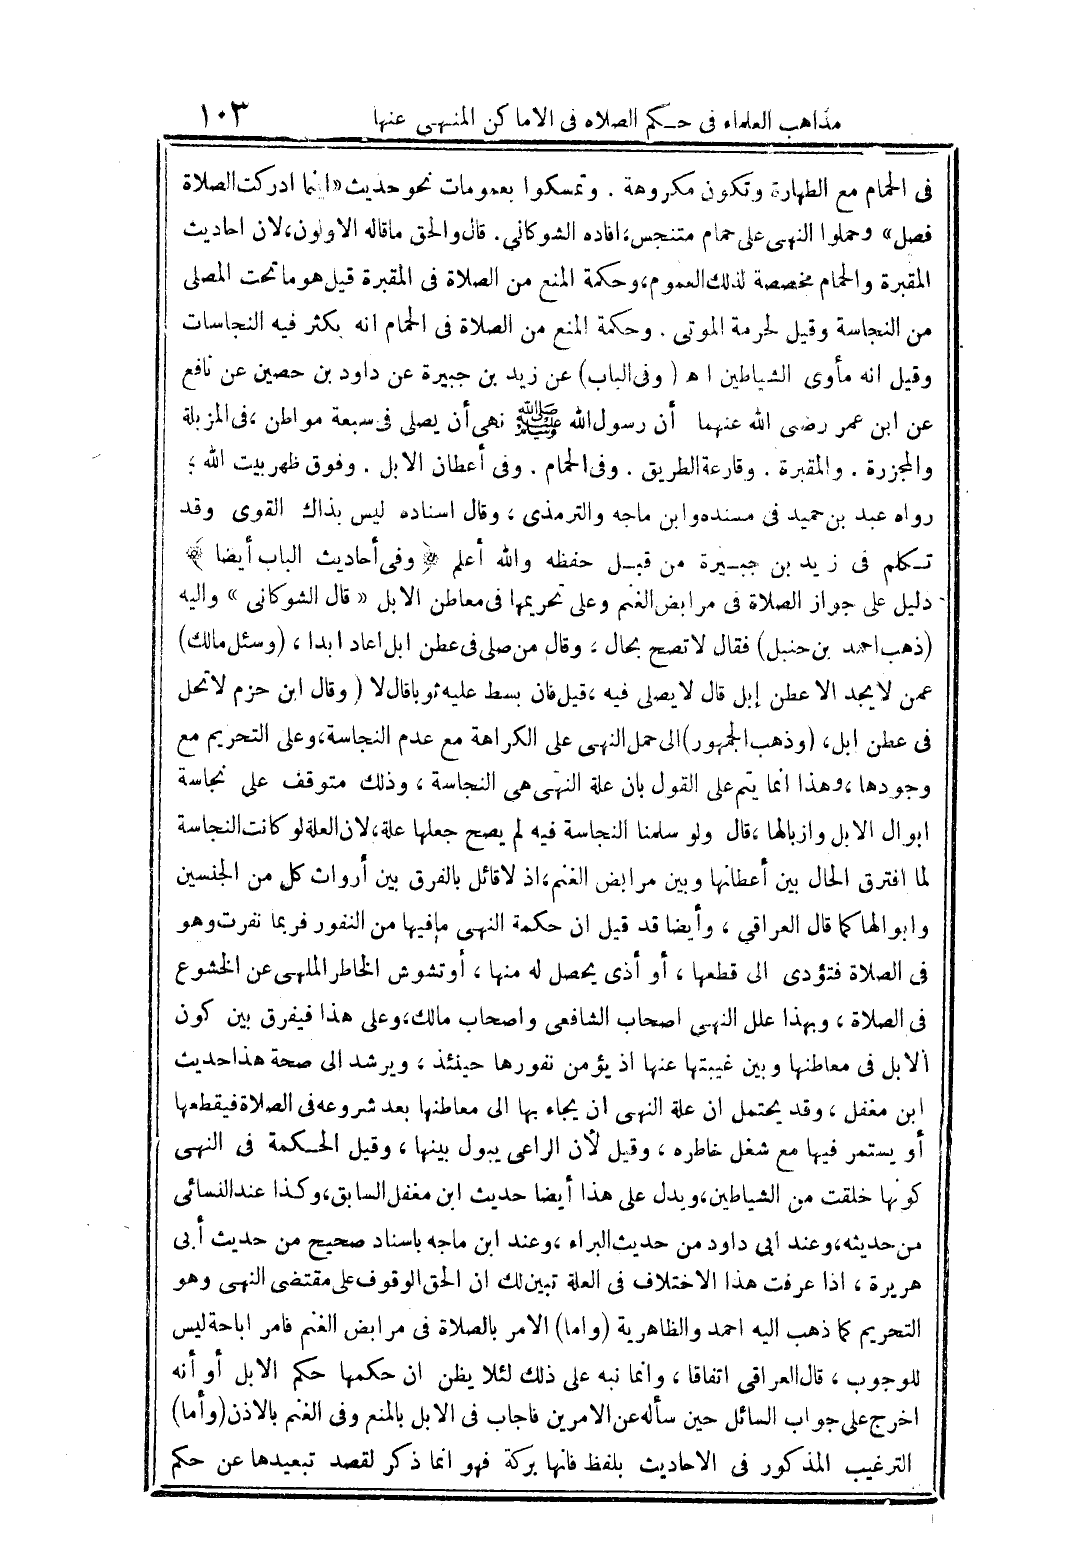 مذاهب العلماء فى حكم الصلاه فى الاماكن المنهى عنها ١٠٣
فى الحمام مع الطهارة وتكون مكروهة . وتمسكوا بعمومات نحو حديث «اينما ادركت الصلاة
فصل» وحملوا النهى على حمام متنجس، افاده الشوكاني. قال والحق ماقاله الاولون، لان احاديث
المقبرة والحمام مخصصة لذلك العموم، وحكمة المنع من الصلاة فى المقبرة قيل هو ما تحت المصلى
من النجاسة وقيل لحرمة الموتى . وحكمة المنع من الصلاة فى الحمام انه يكثر فيه النجاسات
وقيل انه مأوى الشياطين اه ( وفى الباب) عن زيد بن جبيرة عن داود بن حصين عن نافع
عن ابن عمر رضى الله عنهما أن رسول الله ﷺ نهى أن يصلى فى سبعة مواطن ، فى المزبلة
والمجزرة . والمقبرة . وقارعة الطريق . وفى الحمام . وفى أعطان الابل . وفوق ظهر بيت الله ؛
رواه عبد بن حميد فى مسنده وابن ماجه والترمذى ، وقال اسناده ليس بذاك القوى وقد
تكلم فى زيد بن جبيرة من قبل حفظه والله أعلم ﴿ وفى أحاديث الباب أيضا ﴾
دليل على جواز الصلاة فى مرابض الغنم وعلى تحريمها فى معاطن الابل « قال الشوكانى » واليه
(ذهب احمد بن حنبل) فقال لا تصح بحال ، وقال من صلى فى عطن ابل اعاد ابدا ، (وسئل مالك)
عمن لا يجد الا عطن إبل قال لا يصلى فيه ، قيل فان بسط عليه ثوبا قال لا ( وقال ابن حزم لا تحل
فى عطن ابل، (وذهب الجمهور) الى حمل النهى على الكراهة مع عدم النجاسة، وعلى التحريم مع
وجودها ، وهذا انما يتم على القول بان علة النهى هى النجاسة ، وذلك متوقف على نجاسة
ابوال الابل وازبالها ، قال ولو سلمنا النجاسة فيه لم يصح جعلها علة، لان العلة لو كانت النجاسة
لما افترق الحال بين أعطانها وبين مرابض الغنم، اذ لا قائل بالفرق بين أرواث كل من الجنسين
وابوالها كما قال العراقي ، وأيضا قد قيل ان حكمة النهى مافيها من النفور فربما نفرت وهو
فى الصلاة فتؤدى الى قطعها ، أو أذى يحصل له منها ، أو تشوش الخاطر الملهى عن الخشوع
فى الصلاة ، وبهذا علل النهى اصحاب الشافعى واصحاب مالك، وعلى هذا فيفرق بين كون
الابل فى معاطنها وبين غيبتها عنها اذ يؤمن نفورها حينئذ ، ويرشد الى صحة هذا حديث
ابن مغفل ، وقد يحتمل ان علة النهى ان يجاء بها الى معاطنها بعد شروعه فى الصلاة فيقطعها
أو يستمر فيها مع شغل خاطره ، وقيل لأن الراعى يبول بينها ، وقيل الحكمة فى النهى
كونها خلقت من الشياطين، ويدل على هذا أيضا حديث ابن مغفل السابق، وكذا عند النسائى
من حديثه، وعند ابى داود من حديث البراء ، وعند ابن ماجه باسناد صحيح من حديث أبى
هريرة ، اذا عرفت هذا الاختلاف فى العلة تبين لك ان الحق الوقوف على مقتضى النهى وهو
التحريم كما ذهب اليه احمد والظاهرية (واما) الامر بالصلاة فى مرابض الغنم فامر اباحة ليس
للوجوب ، قال العراقي اتفاقا ، وانما نبه على ذلك لئلا يظن ان حكمها حكم الابل أو أنه
اخرج على جواب السائل حين سأله عن الامرين فاجاب فى الابل بالمنع وفى الغنم بالاذن (وأما)
الترغيب المذكور فى الاحاديث بلفظ فانها بركة فهو انما ذكر لقصد تبعيدها عن حكم